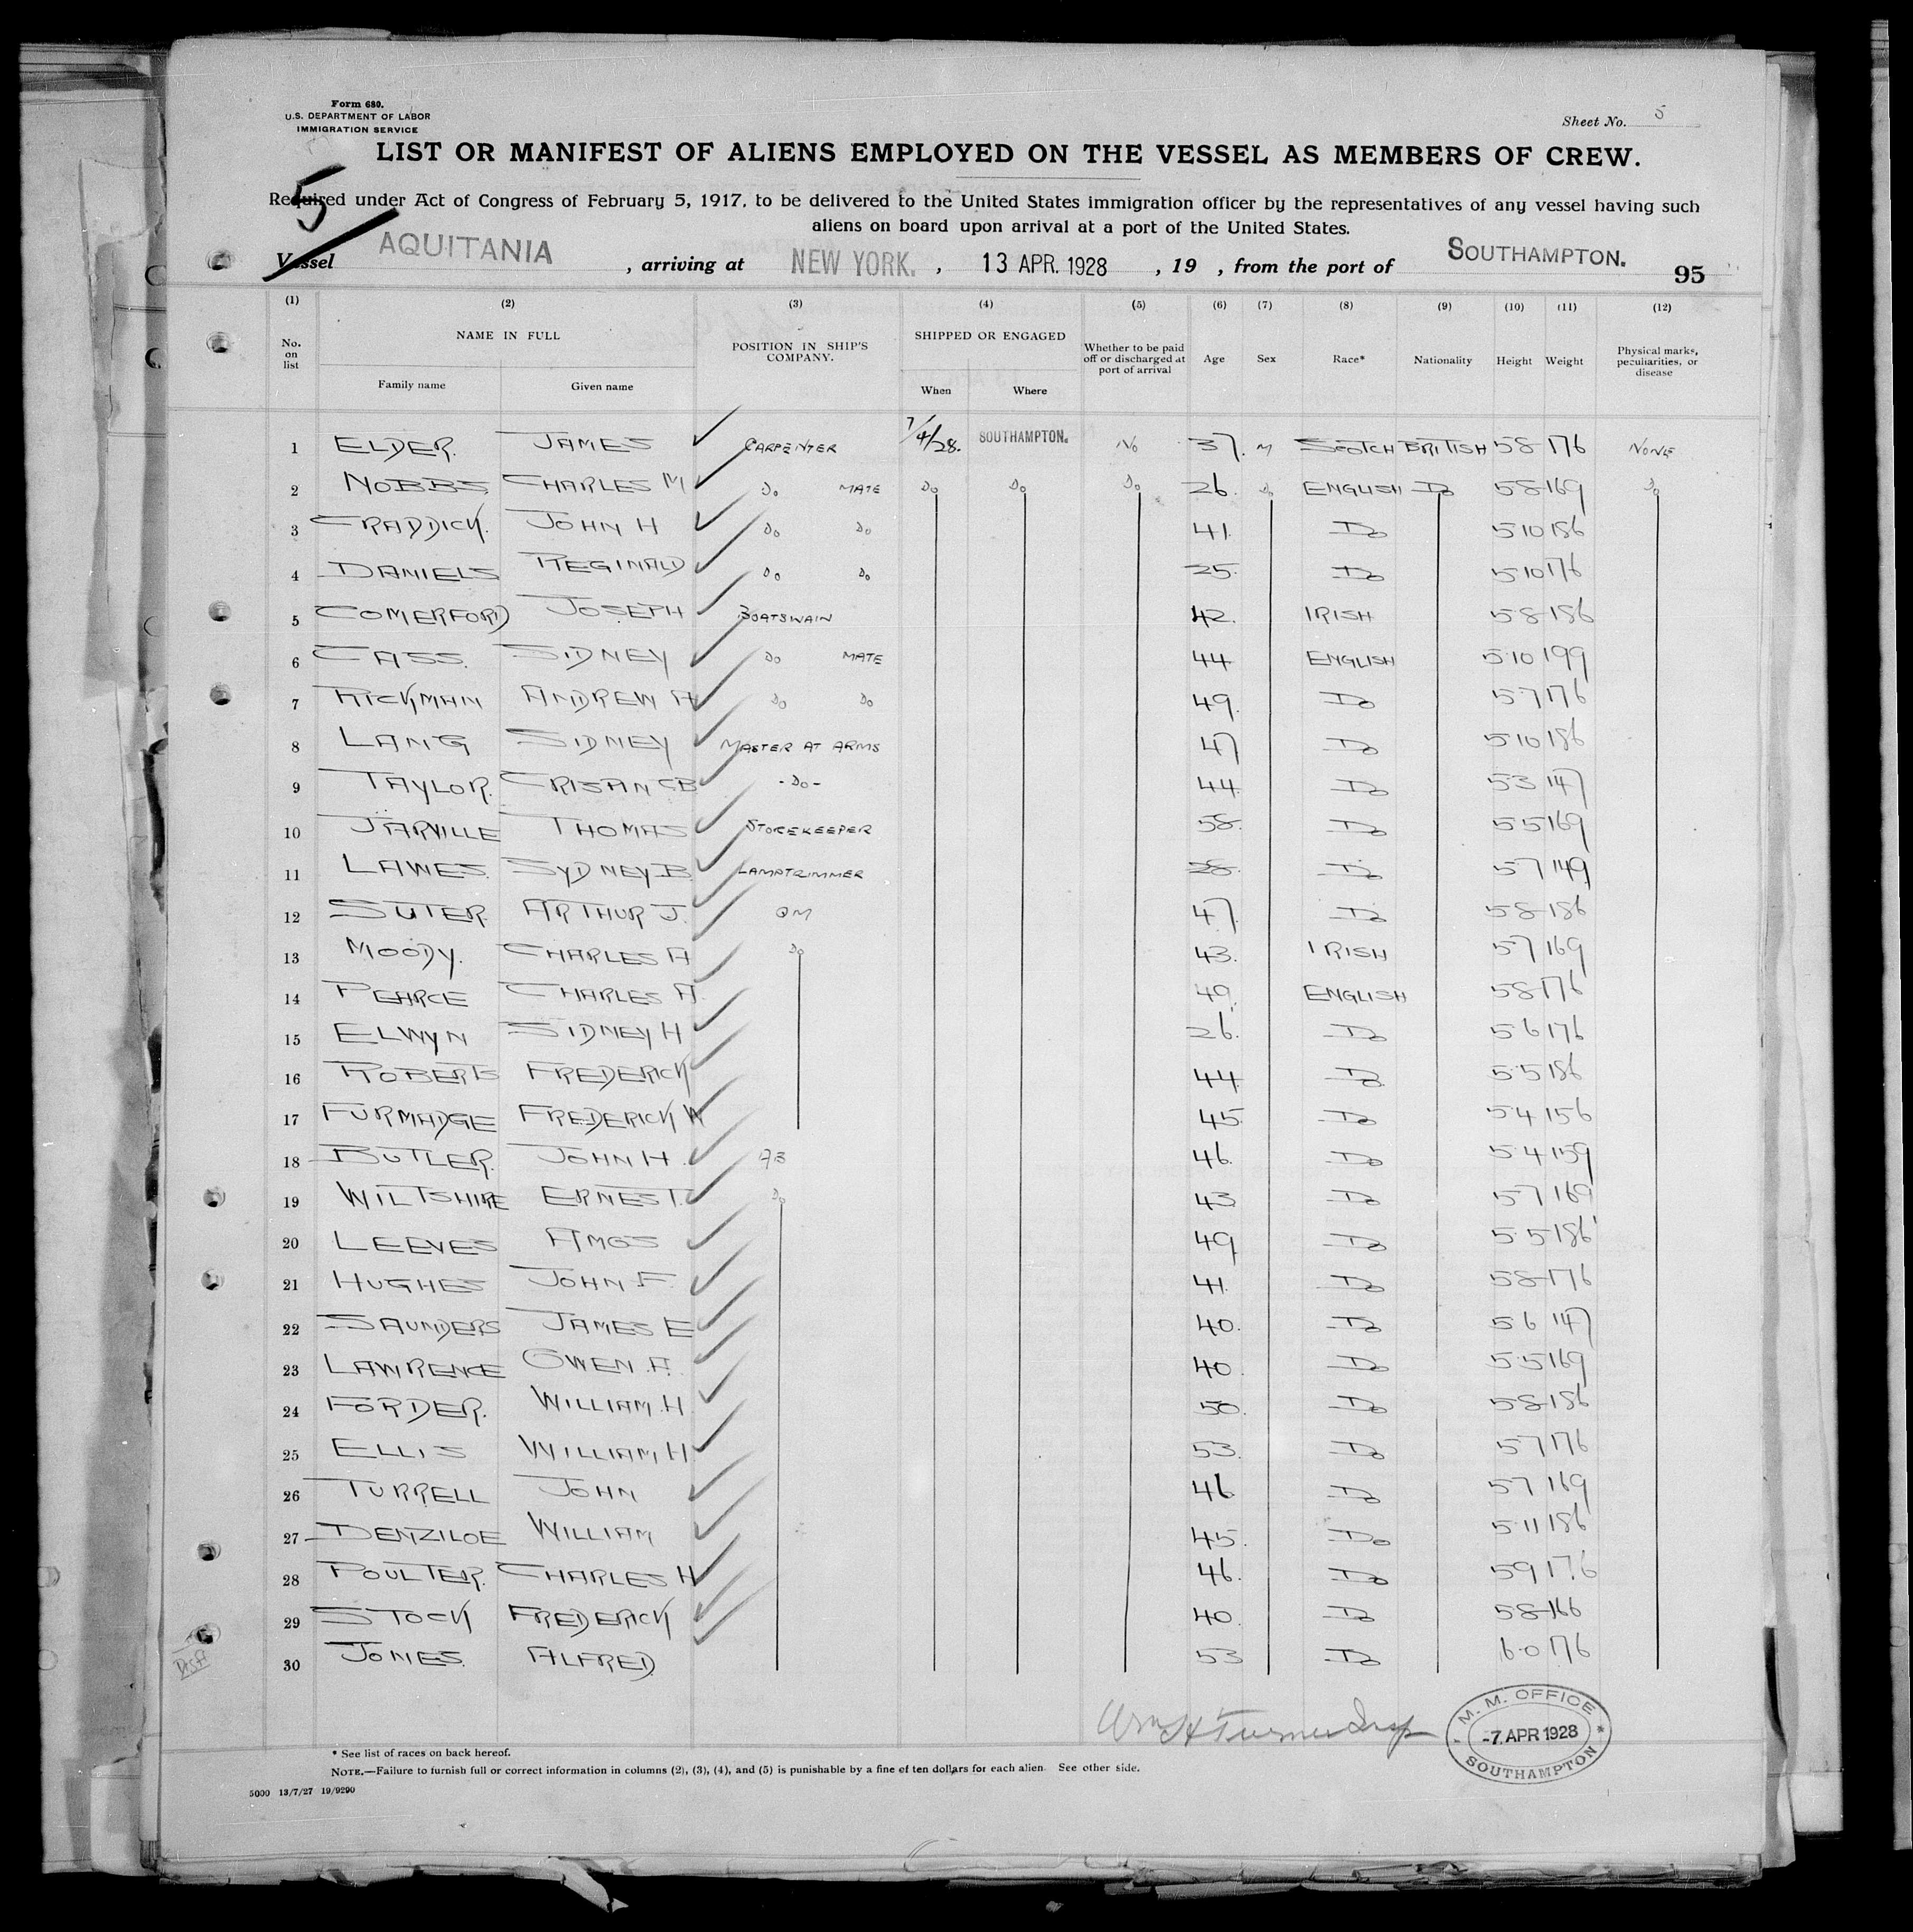 Form 680.
U.S. DEPARTMENT OF LABOR
IMMIGRATION SERVICE
Sheet No. 5
LIST OR MANIFEST OF ALIENS EMPLOYED ON THE VESSEL AS MEMBERS OF CREW.
5
Required under Act of Congress of February 5, 1917, to be delivered to the United States immigration officer by the representatives of any vessel having such
aliens on board upon arrival at a port of the United States.
Vessel AQUITANIA , arriving at NEW YORK. , 13 APR. 1928 , 19 , from the port of SOUTHAMPTON.
95
(1) (2) (3) (4) (5) (6) (7) (8) (9) (10) (11) (12)
No. on list NAME IN FULL POSITION IN SHIP'S COMPANY. SHIPPED OR ENGAGED Whether to be paid off or discharged at port of arrival Age Sex Race* Nationality Height Weight Physical marks, peculiarities, or disease
Family name Given name When Where
1 ELDER. JAMES CARPENTER 7/4/28. SOUTHAMPTON. No 37. M SCOTCH BRITISH 58 176 NONE
2 NOBBS CHARLES M Do MATE Do Do Do 26. Do ENGLISH Do 58 169 Do
3 CRADDICK. JOHN H Do Do 41. Do 510 186
4 DANIELS REGINALD Do Do 25. Do 510 176
5 COMERFORD JOSEPH BOATSWAIN 42. IRISH 58 186
6 CASS. SIDNEY Do MATE 44 ENGLISH 510 199
7 RICKMAN ANDREW A Do Do 49. Do 57 176
8 LANG SIDNEY MASTER AT ARMS 47 Do 510 186
9 TAYLOR. CRISPIN CB -Do- 44. Do 53 147
10 JARVILLE THOMAS STOREKEEPER 58. Do 55 169
11 LAWES. SYDNEY B. LAMPTRIMMER 28. Do 57 149
12 SUTER. ARTHUR J. QM 47. Do 58 186
13 MOODY. CHARLES A Do 43. IRISH 57 169
14 PEARCE CHARLES A. 49. ENGLISH 58 176
15 ELWYN SIDNEY H 26. Do 56 176
16 ROBERTS FREDERICK 44 Do. 55 186
17 FURMADGE FREDERICK W 45 Do 54 156
18 BUTLER. JOHN H. AB 46. Do 54 159
19 WILTSHIRE ERNEST. Do 43 Do 57 169
20 LEEVES AMOS 49 Do 55 186
21 HUGHES JOHN F. 41. Do 58 176
22 SAUNDERS JAMES E 40. Do 56 147
23 LAWRENCE OWEN. A. 40. Do 55 169
24 FORDER. WILLIAM. H. 50. Do 58 186
25 ELLIS WILLIAM, H 53. Do 57 176
26 TURRELL JOHN 46 Do 57 169
27 DENZILOE WILLIAM 45. Do 511 186
28 POULTER. CHARLES H 46. Do 59 176
29 STOCK FREDERICK 40. Do 58 166
30 JONES. ALFRED. 53 Do 60 176
Wm H Turner Insp
M. M. OFFICE
-7. APR 1928
SOUTHAMPTON
* See list of races on back hereof.
NOTE.—Failure to furnish full or correct information in columns (2), (3), (4), and (5) is punishable by a fine of ten dollars for each alien. See other side.
5000 13/7/27 19/9290